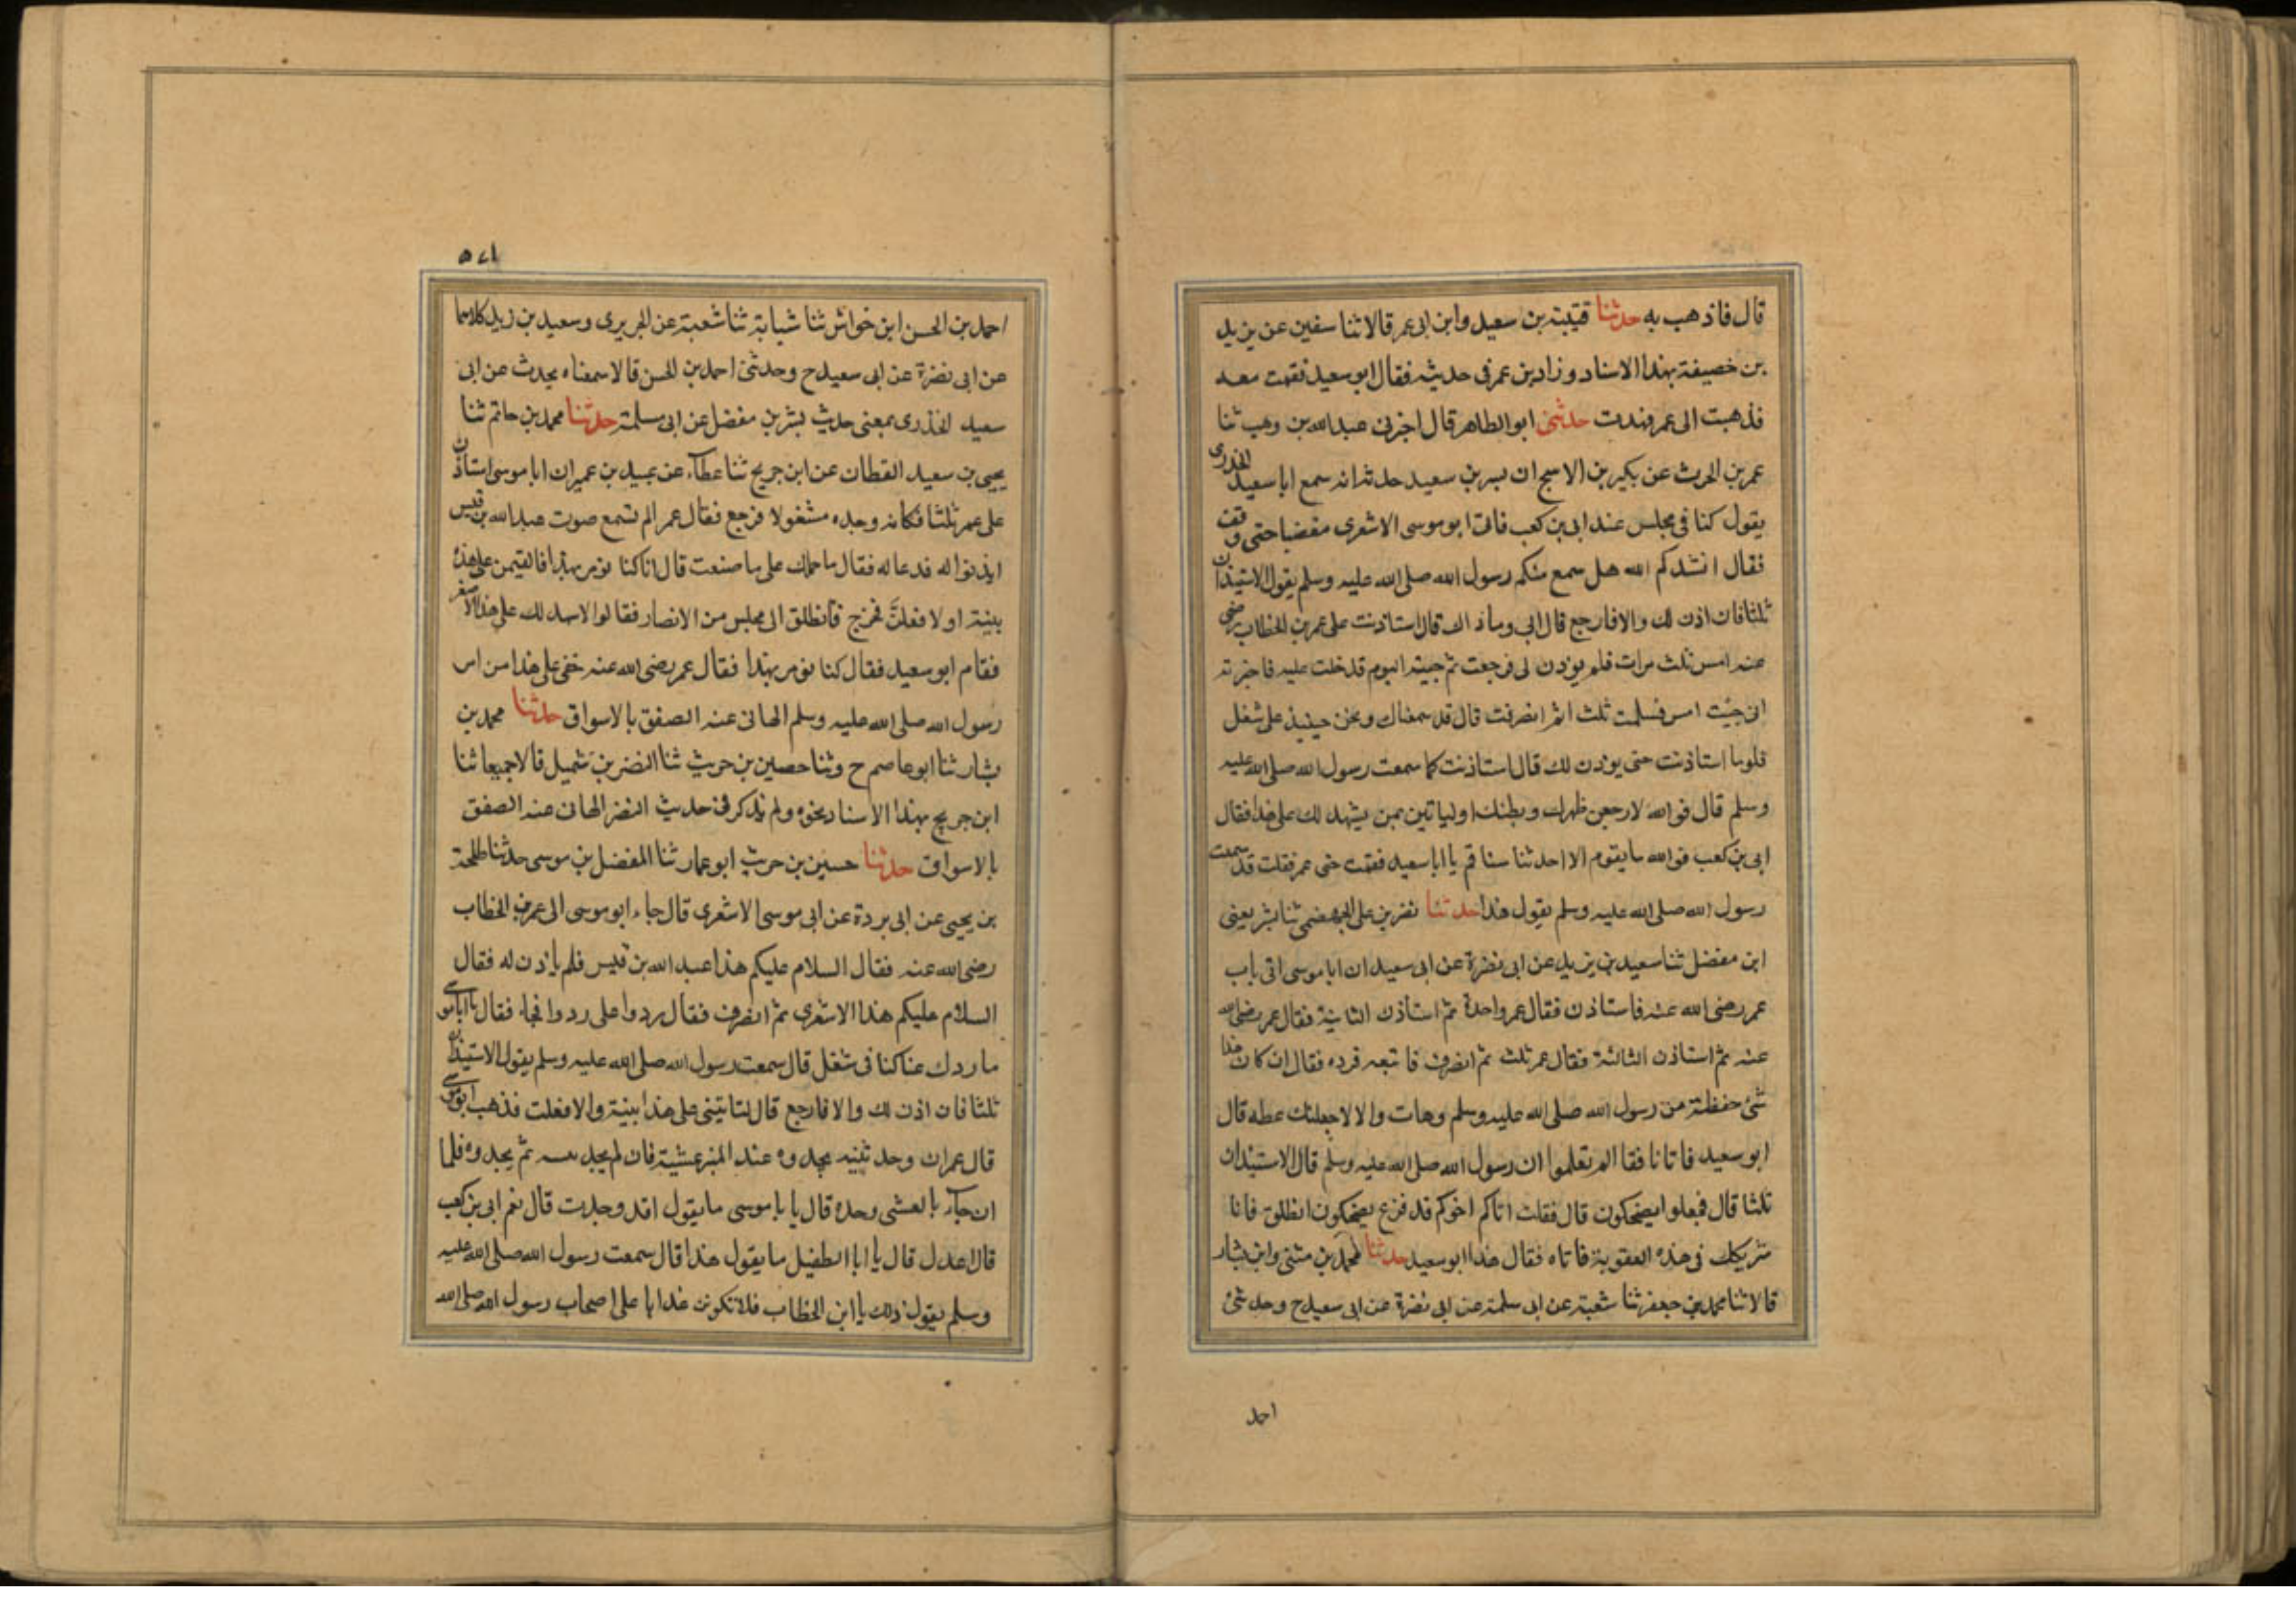 قال فاذهب به حدثنا قتيبة بن سعيد وابن ابى عمر قالا ثنا سفين عن يزيد
بن خصيفة بهذا الاسناد وزاد بن عمر فى حديثه فقال ابو سعيد فقمت معه
فذهبت الى عمر فشهدت حدثنى ابو الطاهر قال اخبرنى عبد الله بن وهب ثنا
عمر بن الحرث عن بكير بن الاشج ان بسر بن سعيد حدثه انه سمع ابا سعيد الخدرى
يقول كنا فى مجلس عند ابى بن كعب فاتى ابو موسى الاشعرى مغضبا حتى وقف
فقال انشدكم الله هل سمع منكم رسول الله صلى الله عليه وسلم يقول الاستيذان
ثلثا فان اذن لك والا فارجع قال ابى وما ذاك قال استاذنت على عمر بن الخطاب رضى
عنه امس ثلث مرات فلم يوذن لى فرجعت ثم جيته اليوم فدخلت عليه فاخبرته
انى جئت امس فسلمت ثلثا ثم انصرفت قال قد سمعناك ونحن حينيذ على شغل
فلو ما استاذنت حتى يوذن لك قال استاذنت كما سمعت رسول الله صلى الله عليه
وسلم قال فوالله لارجعن ظهرك وبطنك او لياتين بمن يشهد لك على هذا فقال
ابى بن كعب فوالله ما يقوم الا احدثنا سنا قم يا ابا سعيد فقمت حتى عمر فقلت قد سمعت
رسول الله صلى الله عليه وسلم يقول هذا حدثنا نصر بن على الجهضمى ثنا بشر يعنى
ابن مفضل ثنا سعيد بن يزيد عن ابى نضرة عن ابى سعيد ان ابا موسى اتى باب
عمر رضى الله عنه فاستاذن فقال عمر واحدة ثم استاذن الثانية فقال عمر رضى الله
عنه ثم استاذن الثالثة فقال عمر ثلث ثم انصرف فاتبعه فرده فقال ان كان هذا
شئ حفظته من رسول الله صلى الله عليه وسلم وهات والا لاجعلنك عظه قال
ابو سعيد فاتانا فقا الم تعلموا ان رسول الله صلى الله عليه وسلم قال الاستيذان
ثلثا قال فجعلوا يضحكون قال فقلت اتاكم اخوكم قد فزع يضحكون انطلق فانا
شريكك فى هذه العقوبة فاتاه فقال هذا ابو سعيد حدثنا محمد بن مثنى وابن بشار
قالا ثنا محمد بن جعفر ثنا شعبة عن ابى سلمة عن ابى نضرة عن ابى سعيد ح وحدثنى
احمد
٥٧١
احمد بن الحسن ابن خواش ثنا شبابة ثنا شعبة عن الجريرى وسعيد بن زيد كلاهما
عن ابى نضرة عن ابى سعيد ح وحدثنى احمد بن الحسن قالا سمعناه يحدث عن ابى
سعيد الخذرى بمعنى حديث بشر بن مفضل عن ابى سلمة حدثنا محمد بن حاتم ثنا
يحيى بن سعيد القطان عن ابن جريج ثنا عطاء عن عبيد بن عمير ان ابا موسى استاذن
على عمر ثلثا فكانه وجده مشغولا فرجع فقال عمر الم تسمع صوت عبد الله بن قيس
ايذنوا له فدعا له فقال ما حملك على ما صنعت قال انا كنا نومر بهذا قال لتقيمن على هذه
بينة او لافعلنّ فخرج فانطلق الى مجلس من الانصار فقالوا لا يشهد لك على هذا الا اصغر
فقام ابو سعيد فقال كنا نومر بهذا فقال عمر رضى الله عنه خفى على هذا من امر
رسول الله صلى الله عليه وسلم الهانى عنه الصفق بالاسواق حدثنا محمد بن
بشار ثنا ابو عاصم ح وثنا حصين بن حريث ثنا النضر بن شميل قالا جميعا ثنا
ابن جريج بهذا الاسناد بنحوه ولم يذكر فى حديث النضر الهانى عنه الصفق
بالاسواق حدثنا حسين بن حريث ابو عمار ثنا المفضل بن موسى حدثنا طلحة
بن يحيى عن ابى بردة عن ابى موسى الاشعرى قال جاء ابو موسى الى عمر بن الخطاب
رضى الله عنه فقال السلام عليكم هذا عبد الله بن قيس فلم ياذن له فقال
السلام عليكم هذا الاشعرى ثم انصرف فقال ردوا على ردوا فجاء فقال يا ابا موسى
ما ردك عنا كنا فى شغل قال سمعت رسول الله صلى الله عليه وسلم يقول الاستيذان
ثلثا فان اذن لك والا فارجع قال لتاتينى على هذا بينة والا فعلت فذهب ابو موسى
قال عمر ان وجد بينه يجدوه عند المنبر عشية فان لم يجد بينه ثم يجدوه فلما
ان جاء بالعشى وجده قال يا با موسى ما يقول اقد وجدت قال نعم ابى بن كعب
قال اعدل قال يا ابا الطفيل ما يقول هذا قال سمعت رسول الله صلى الله عليه
وسلم يقول ذلك يا ابن الخطاب فلا تكونن عذابا على اصحاب رسول الله صلى الله